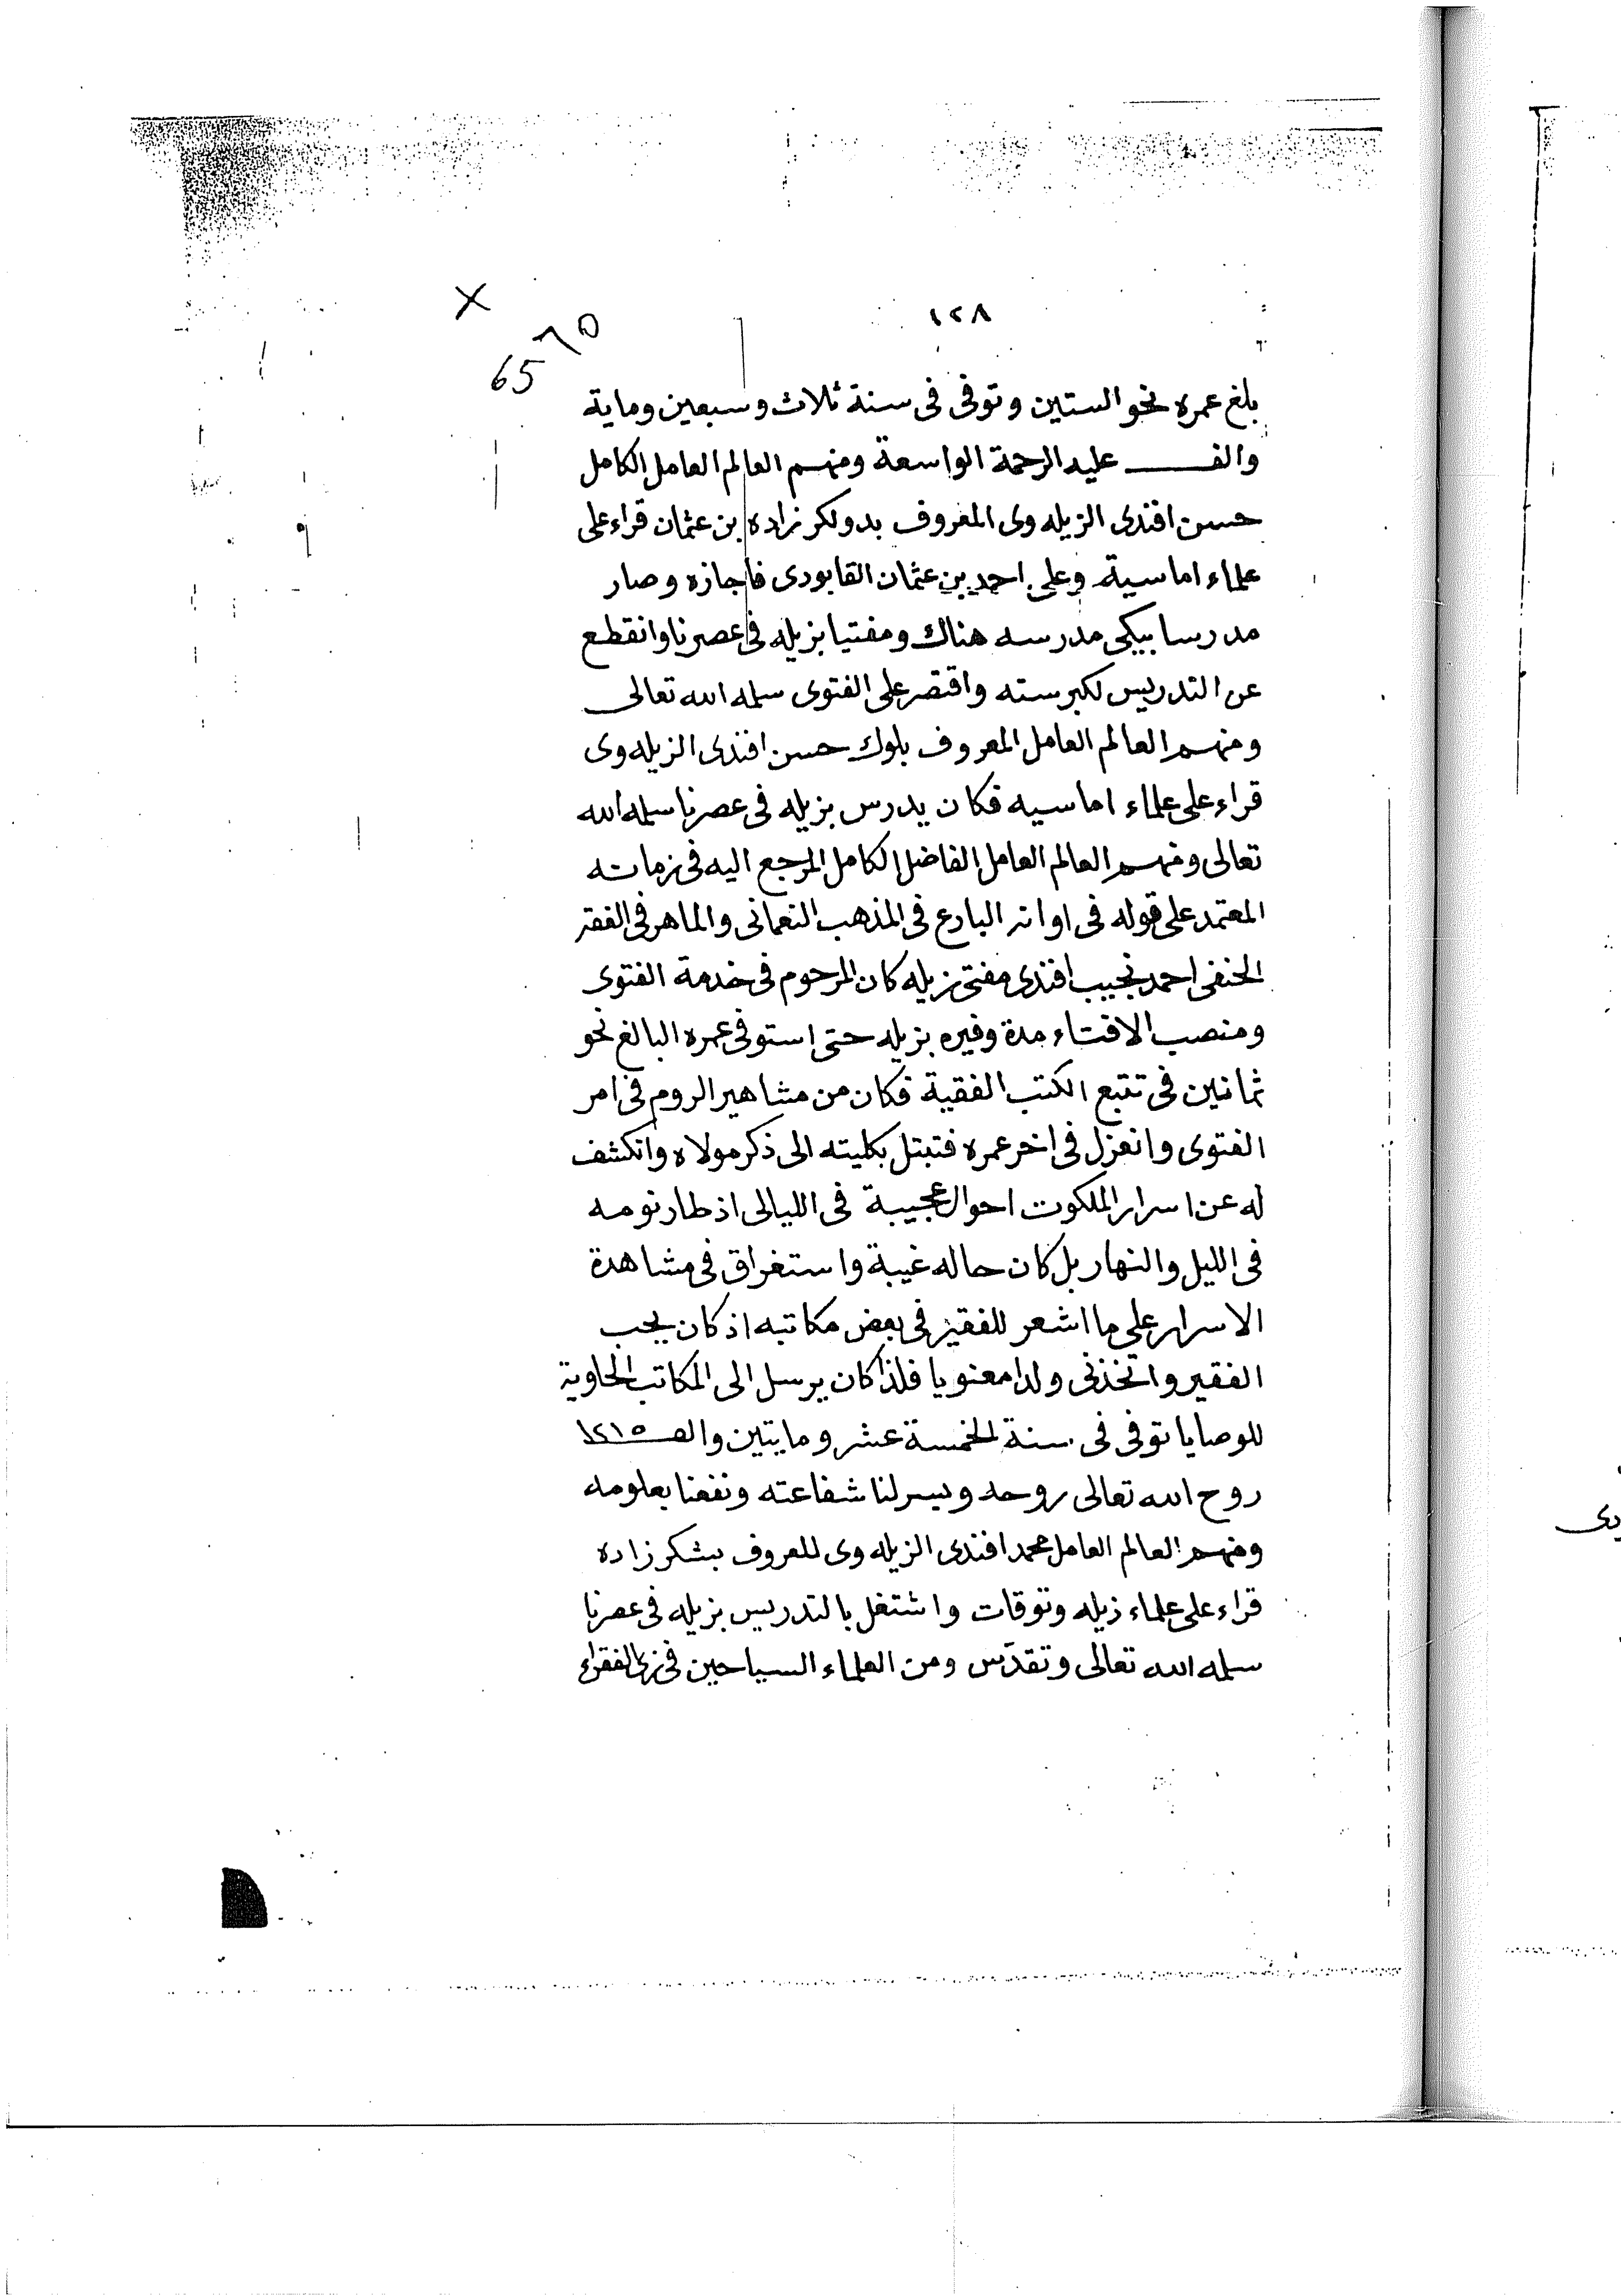 ١٢٨
٦٥
65
بلغ عمره نحو الستين وتوفى فى سنة ثلاث وسبعين وماية
والف عليه الرحمة الواسعة ومنهم العالم العامل الكامل
حسن افندى الزيله وى المعروف بدولكر زاده بن عثمان قراء على
علماء اماسية وعلى احمد بن عثمان القابودى فاجازه وصار
مدرسا بيكى مدرسه هناك ومفتيا بزيله فى عصرنا وانقطع
عن التدريس لكبر سنه واقتصر على الفتوى سلمه الله تعالى
ومنهم العالم العامل المعروف بلوك حسن افندى الزيله وى
قراء على علماء اماسيه فكان يدرس بزيله فى عصرنا سلمه الله
تعالى ومنهم العالم العامل الفاضل الكامل المرجع اليه فى زمانه
المعتمد على قوله فى اوانه البارع فى المذهب النعمانى والماهر فى الفقه
الحنفى احمد نجيب افندى مفتى زيله كان المرحوم فى خدمة الفتوى
ومنصب الافتاء مدة وفيره بزيله حتى استوفى عمره البالغ نحو
ثمانين فى تتبع الكتب الفقهية فكان من مشاهير الروم فى امر
الفتوى وانعزل فى اخر عمره فتبتل بكليته الى ذكر مولاه وانكشف
له عن اسرار الملكوت احوال عجيبة فى الليالى اذ طار نومه
فى الليل والنهار بل كان حاله غيبة واستغراق فى مشاهدة
الاسرار على ما اشعر للفقير فى بعض مكاتبه اذ كان يحب
الفقير واتخذنى ولدا معنويا فلذا كان يرسل الى المكاتب الحاوية
للوصايا توفى فى سنة الخمسة عشر ومايتين والف ١٢١٥
روح الله تعالى روحه ويسر لنا شفاعته ونفعنا بعلومه
ومنهم العالم العامل محمد افندى الزيله وى المعروف بشكر زاده
قراء على علماء ذيله وتوقات واشتغل بالتدريس بزيله فى عصرنا
سلمه الله تعالى وتقدّس ومن العلماء السياحين فى زى الفقراء